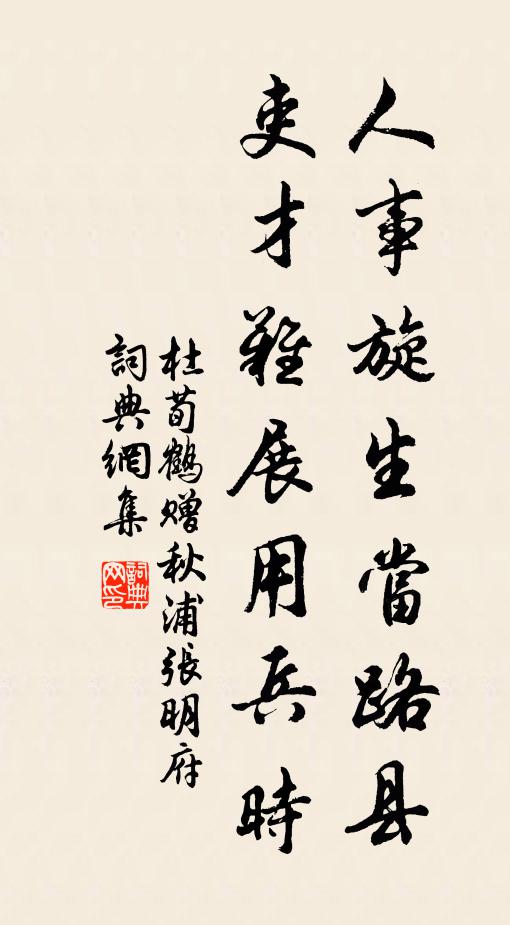 人事旋生當路县
吏才難展用兵時
杜荀鶴贈秋浦張明府
詞典網集
詞典网印